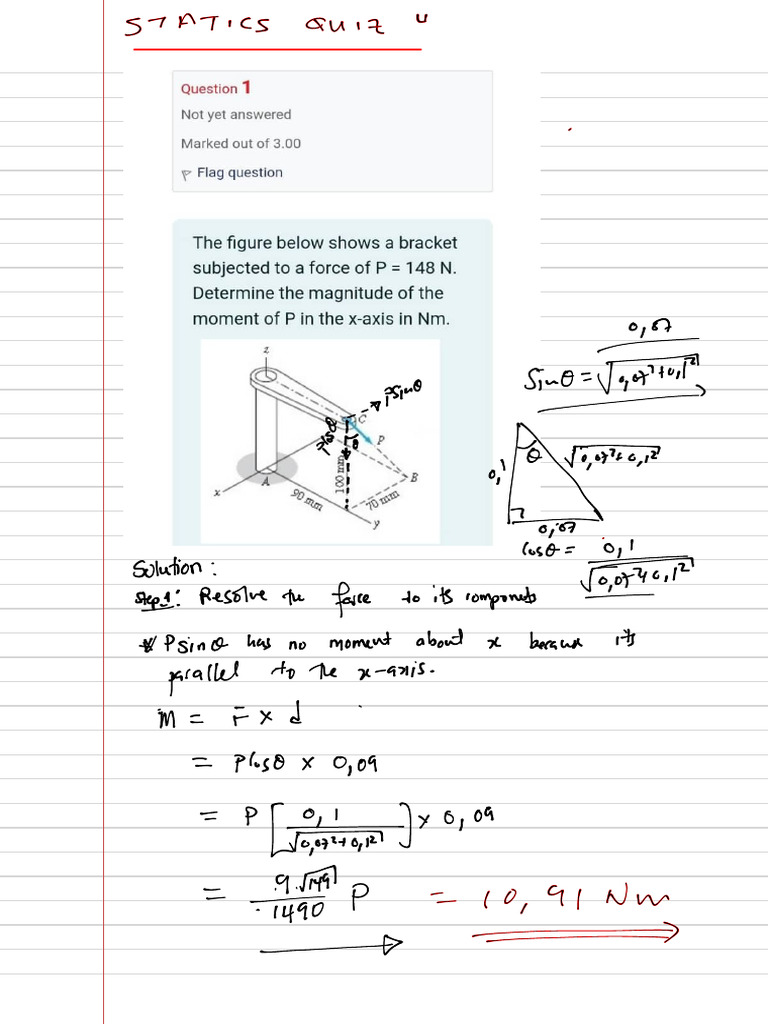 STATICS QUIZ "
Question 1
Not yet answered
Marked out of 3.00
Flag question
The figure below shows a bracket
subjected to a force of P = 148 N.
Determine the magnitude of the
moment of P in the x-axis in Nm.
z
Psinθ
C
Pcosθ
θ
P
100 mm
A
B
x
90 mm
70 mm
y
0,07
Sinθ = √0,07²+0,1²
θ
0,1
√0,07²+0,1²
0,07
Cosθ = 0,1
√0,07²+0,1²
Solution :
Step 1: Resolve the force to its components
* P sinθ has no moment about x because its
parallel to the x-axis.
M = F × d
= Pcosθ × 0,09
= P [ 0,1 / √0,07²+0,1² ] × 0,09
= 9√149 / 1490 P = 10,91 Nm